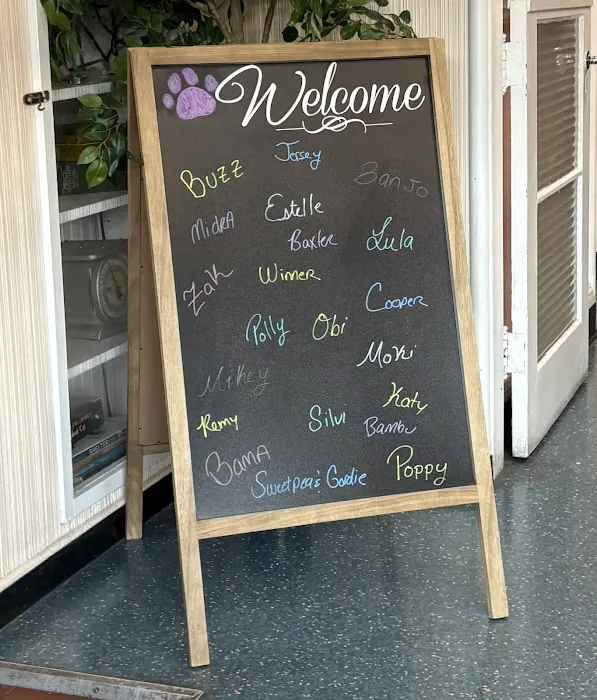 Welcome
Jersey
Buzz
Banjo
Estelle
Midra
Baxter
Lula
Zak
Winner
Cooper
Polly
Obi
Moki
Mikey
Katy
Remy
Silvi
Bambu
Bama
Poppy
Sweetpea's Goodie